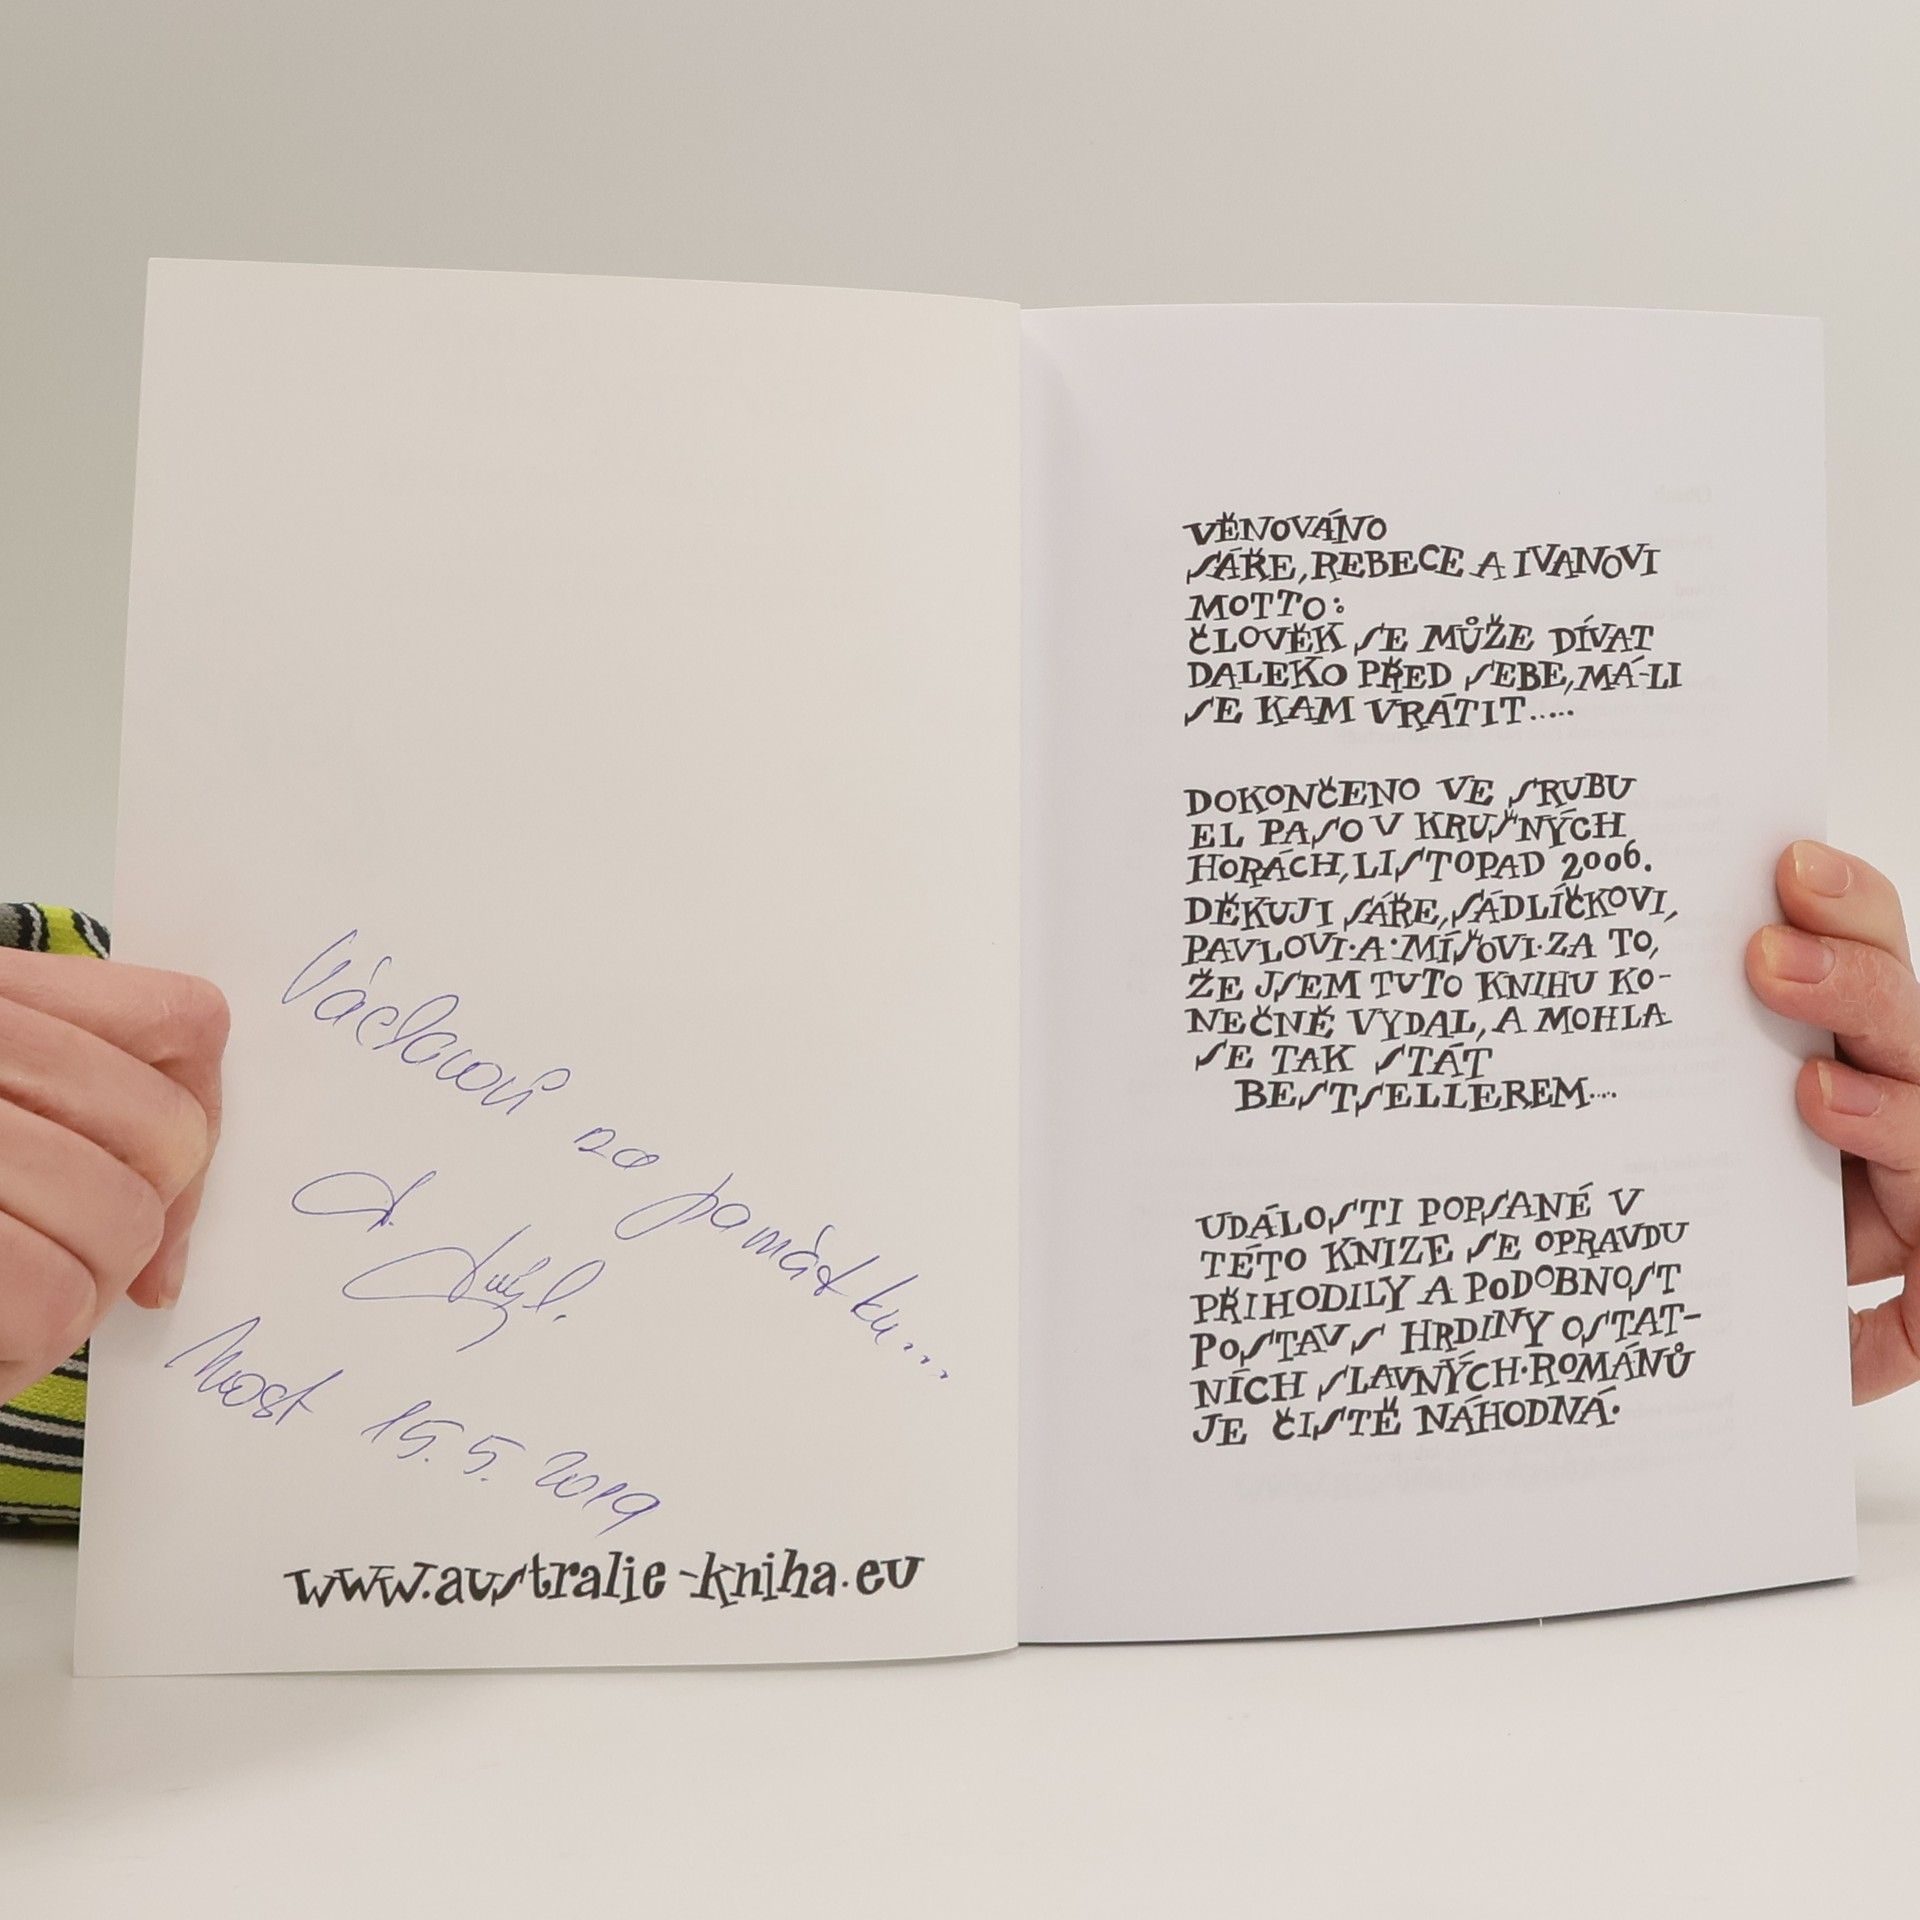 Václavovi na památku...
Most 15.5.2019
www.australie-kniha.eu
VĚNOVÁNO
SÁŘE, REBECE A IVANOVI
MOTTO:
ČLOVĚK SE MŮŽE DÍVAT
DALEKO PŘED SEBE, MÁ-LI
SE KAM VRÁTIT.....
DOKONČENO VE SRUBU
EL PASO V KRUŠNÝCH
HORÁCH, LISTOPAD 2006.
DĚKUJI SÁŘE, SÁDLÍČKOVI,
PAVLOVI·A·MÍŠOVI·ZA TO,
ŽE JSEM TUTO KNIHU KO-
NEČNĚ VYDAL, A MOHLA
SE TAK STÁT
BESTSELLEREM....
UDÁLOSTI POPSANÉ V
TÉTO KNIZE SE OPRAVDU
PŘIHODILY A PODOBNOST
POSTAV S HRDINY OSTAT-
NÍCH SLAVNÝCH·ROMÁNŮ
JE ČISTĚ NÁHODNÁ.